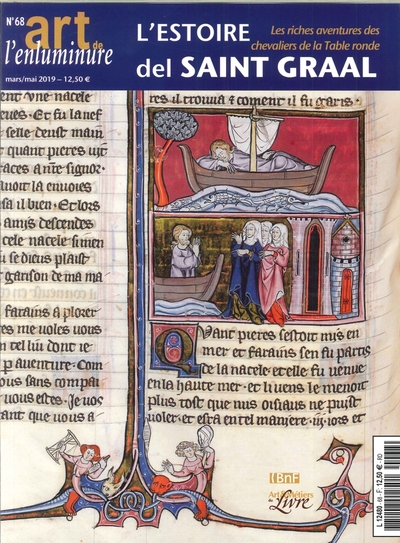 N°68
art de
l'enluminure
mars/mai 2019 – 12,50 €
L'ESTOIRE
del SAINT GRAAL
Les riches aventures des
chevaliers de la Table ronde
ent vne nacele
cues. Et fu la nef
selle deust main
quant pieres
faces a nre signor.
la enuoies
sa il bien. Et lors
amis descendes
cele nacele
u se dieus plaist
garson de ma ma
farains a plorer
res me voles vous
en tel liu dont ie
aventure. Com
ous sans compai
vous estes. Je vos
ant que vous a
res il trouua & coment il fu garis.
Quant pieres sestoit mis en
mer et farains sen fu partis
de la nacele et elle fu venue
en la haute mer. et li vens le menoit
plus tost que nus oisiaus ne puist
voler. et esta en tel maniere. iij. iors et
BnF
Art & Métiers
du Livre
L 12489 - 68 - F: 12,50 € - RD